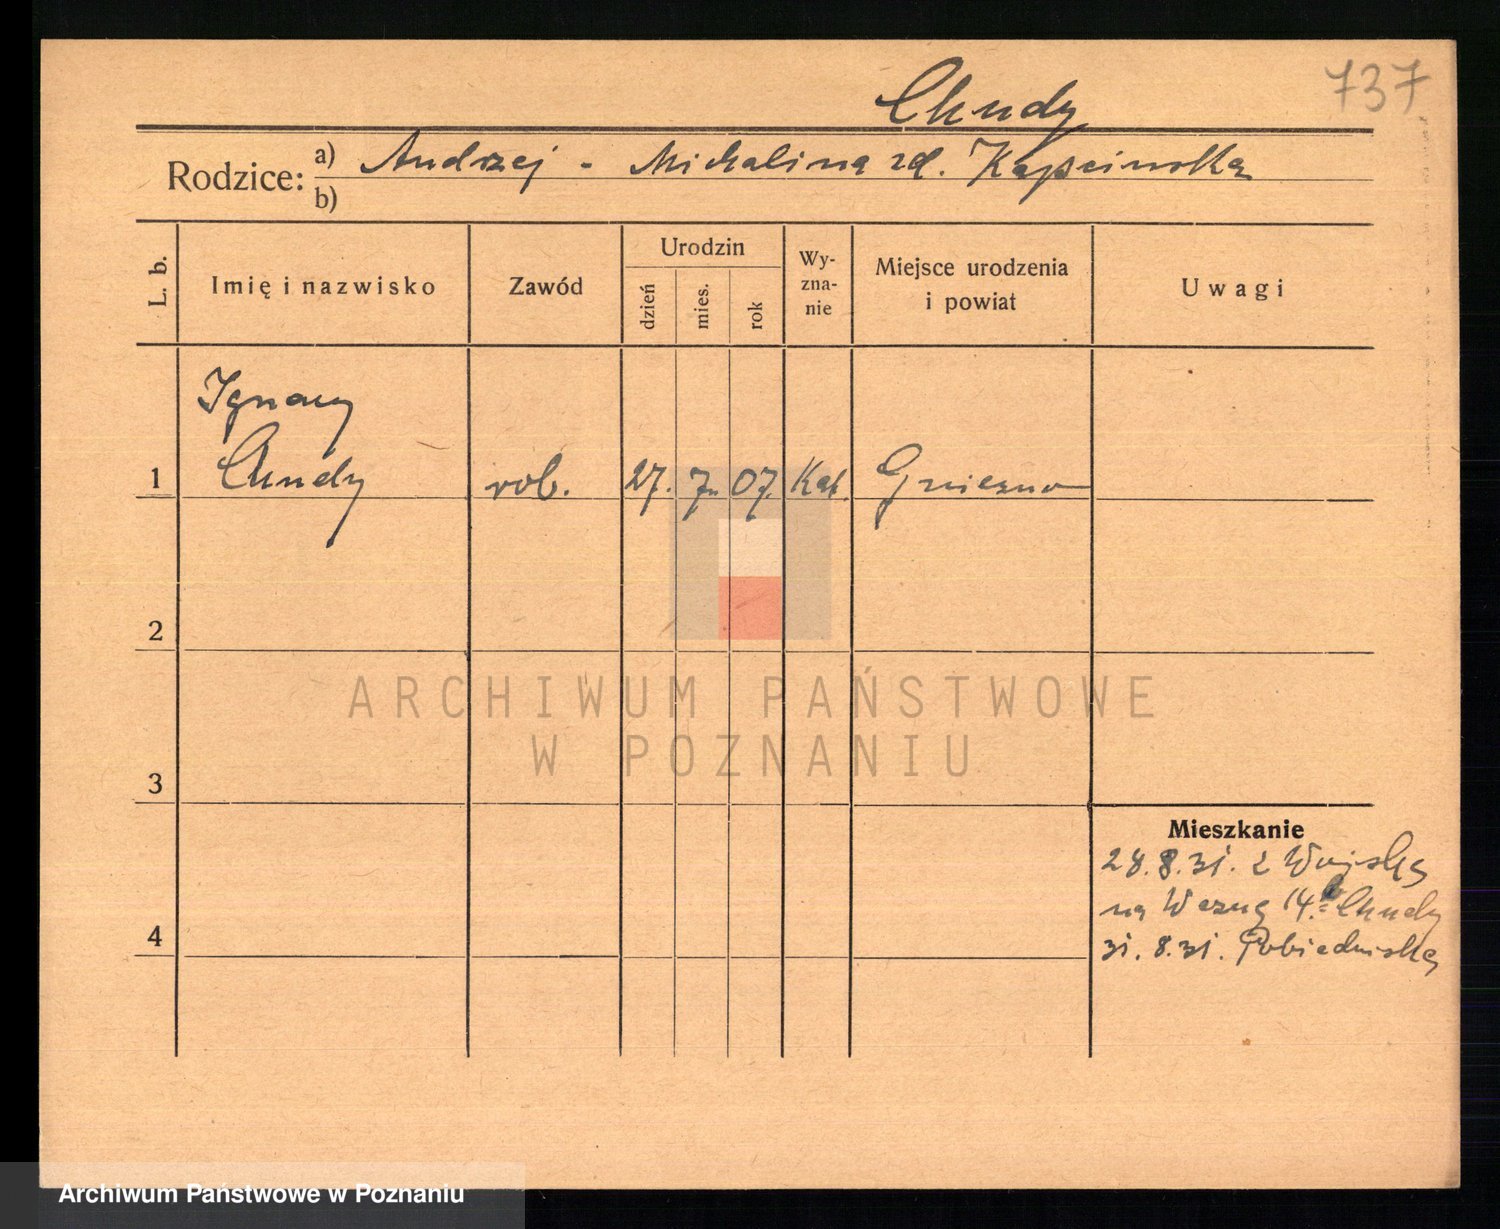 737
Chudy
Rodzice: a) Andrzej - Michalina zd. Kapcińska
b)
L. b.
Imię i nazwisko
Zawód
Urodzin
dzień
mies.
rok
Wy-
zna-
nie
Miejsce urodzenia
i powiat
Uwagi
Ignacy
1 Chudy rob. 27. 7. 07. Kat. Gniezno
2
ARCHIWUM PAŃSTWOWE
W POZNANIU
3
Mieszkanie
28.8.31. z Wojska
na 14. Chudy
4
31. 8. 31. Pobiedziska
Archiwum Państwowe w Poznaniu